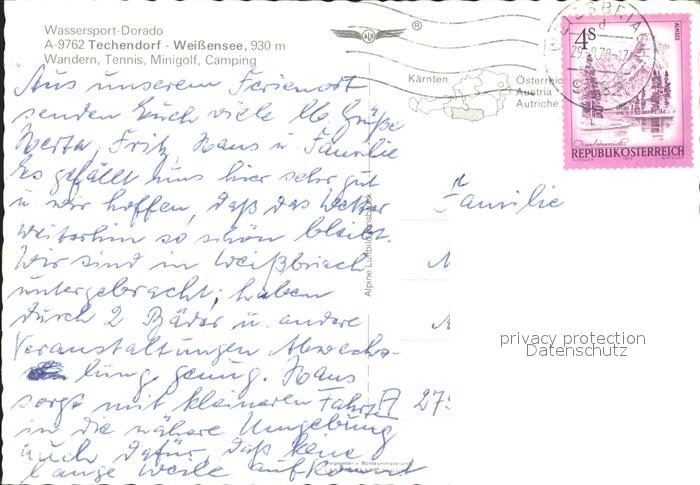 Wassersport-Dorado
A-9762 Techendorf - Weißensee, 930 m
Wandern, Tennis, Minigolf, Camping
®
Kärnten
Österreich
Austria
Autriche
4s
ALMSEE
REPUBLIK ÖSTERREICH
Aus unserem Ferienort
senden Euch viele lb. Grüße
Herta, Fritz, Hans u. Familie
Es gefällt uns hier sehr gut
u. wir hoffen, daß das Wetter
weiterhin so schön bleibt.
Wir sind in Weißbriach
untergebracht; haben
durch 2 Bäder u. andere
Veranstaltungen Abwechs-
lung genug. Hans
sorgt mit kleineren Fahrt
in die nähere Umgebung
auch dafür, daß keine
lange Weile aufkommt
Familie
A 27
Alpine Luftbild Innsbruck
privacy protection
Datenschutz